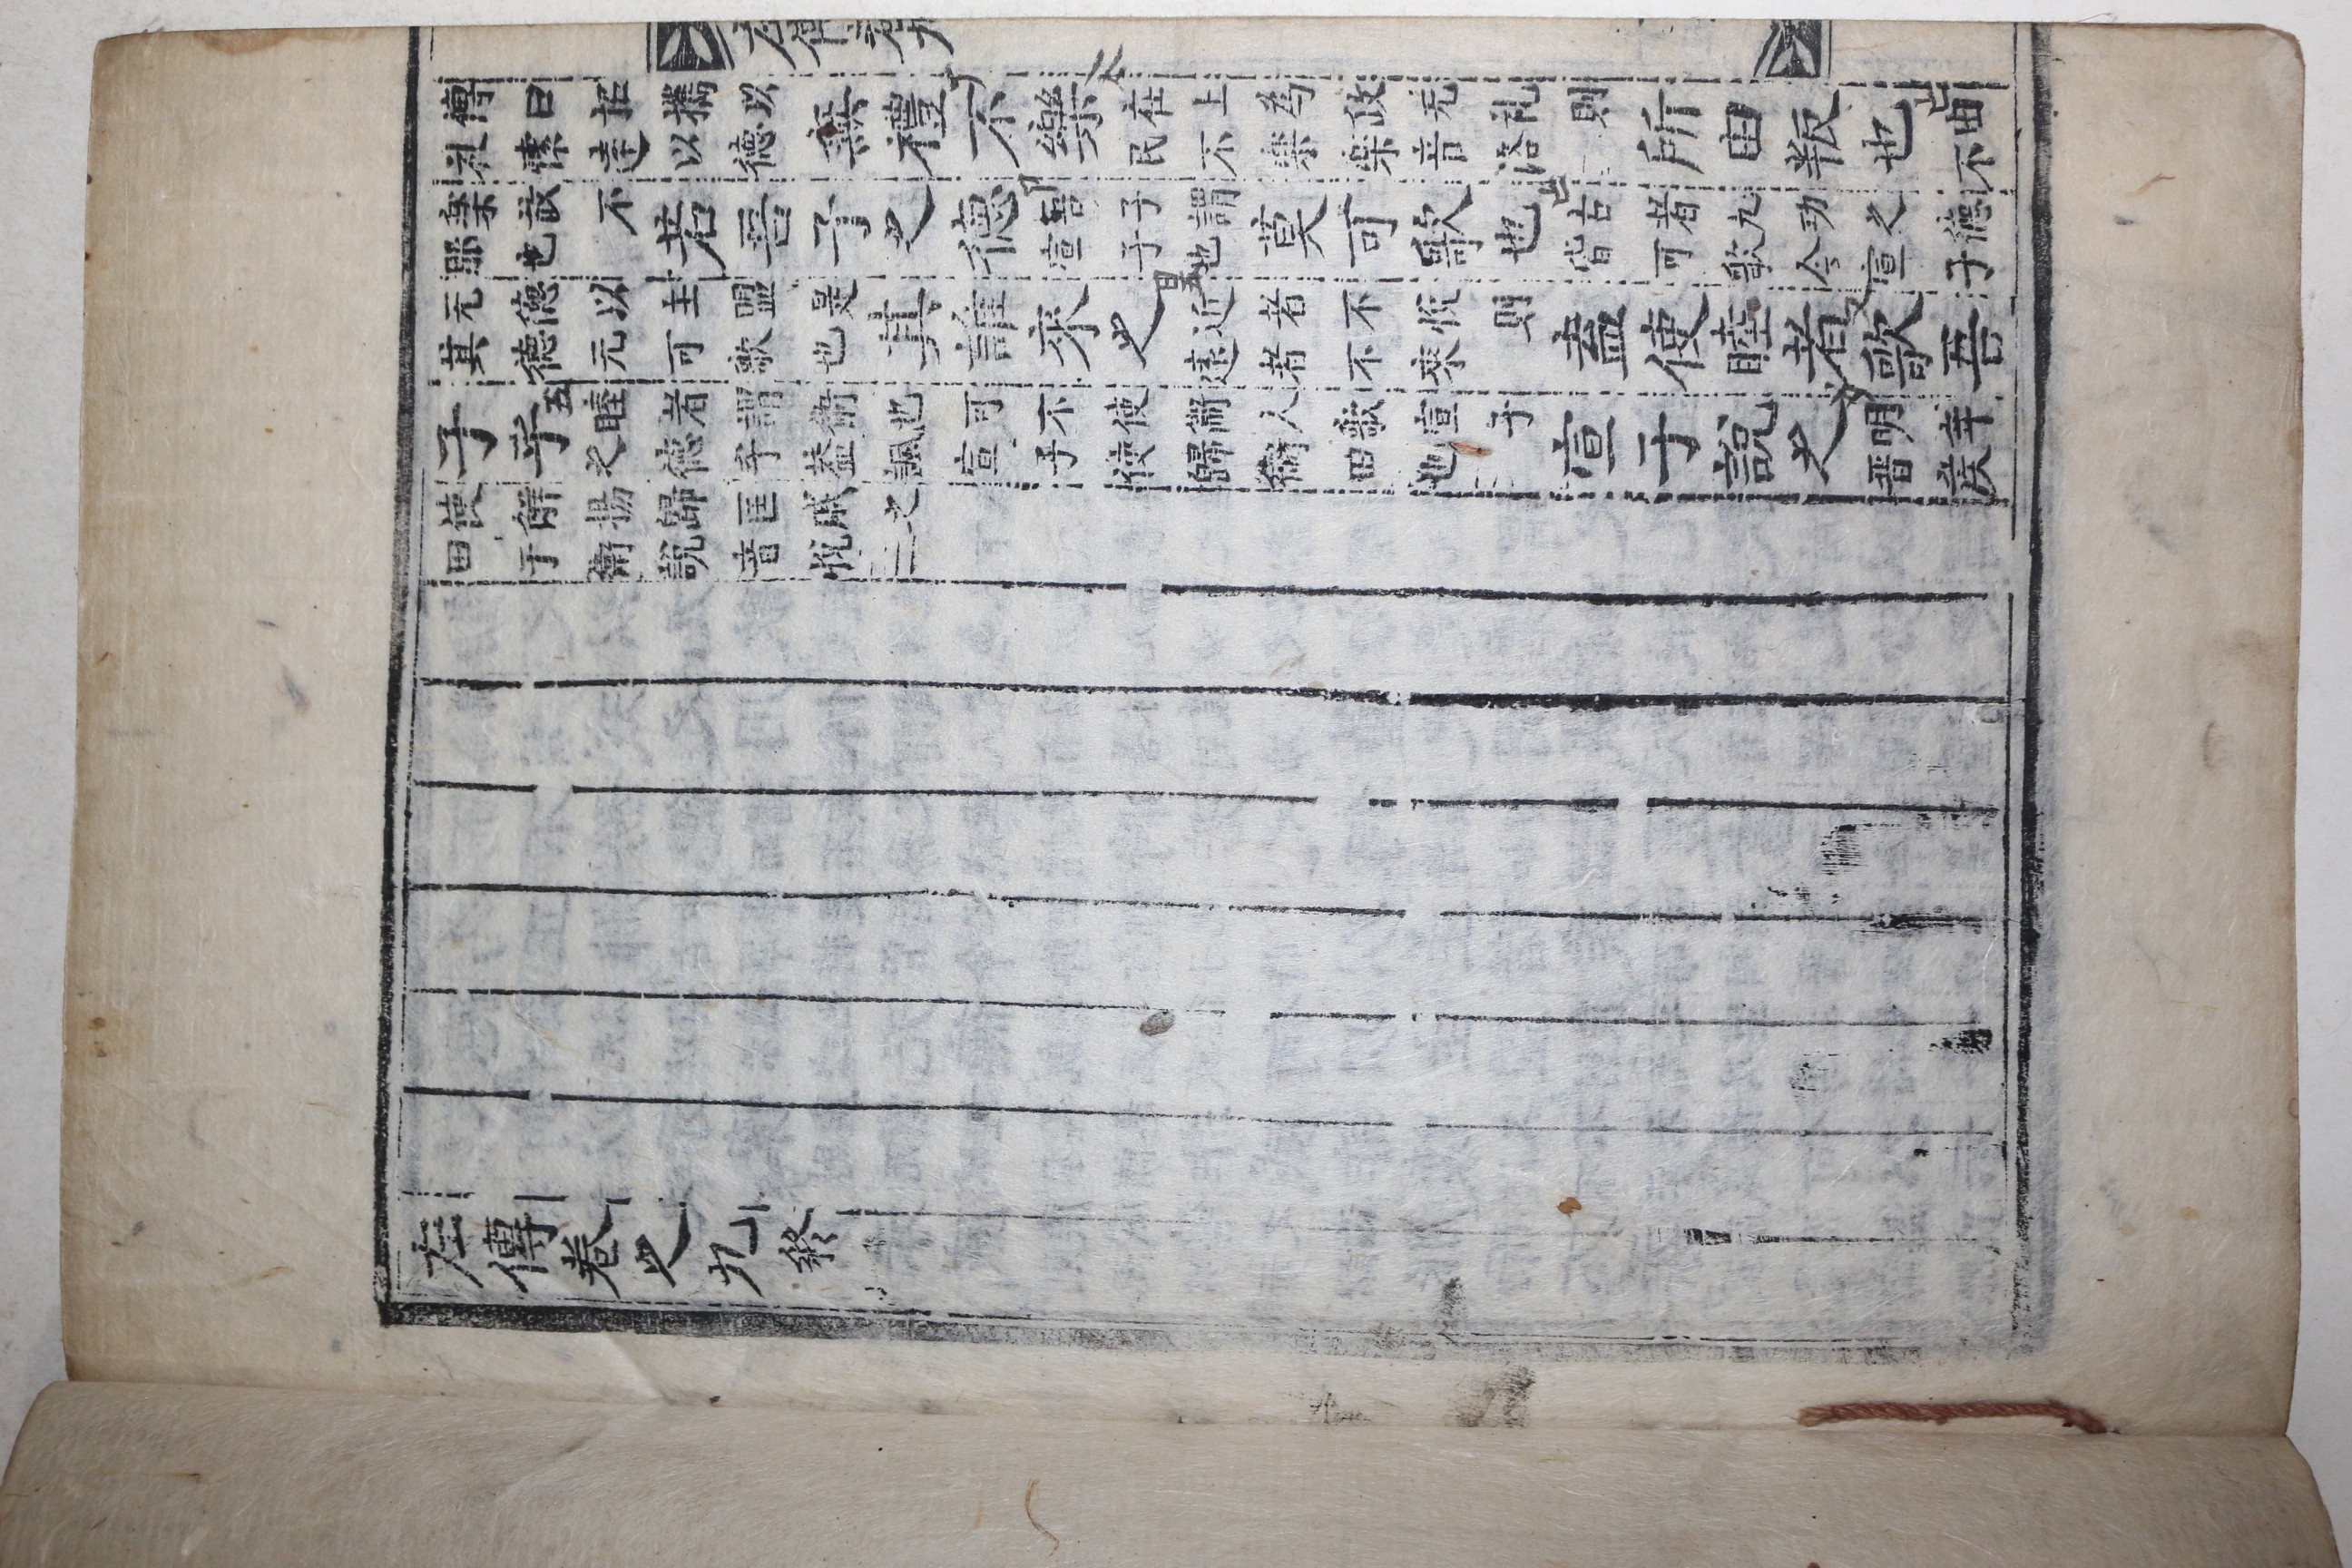 左傳卷九
傳曰招攜以礼懷遠以德無禮不樂在上為政无礼則民不楽楽音洛所由叛也由不
楽故不也若吾子之德吾子謂宣子也莫可歌也古者九功之德皆可歌今宣子
元德以主盟是其德元可歌也其誰來之近者不悅則遠者不來盍使睦者歌吾
子乎睦者謂衛也可不使衛人歌宣子之德乎蓋諷宣子使歸衛田也宣子說之明年晋侯
使解揚歸匡戚之田于衛說音悅
左傳卷之九終